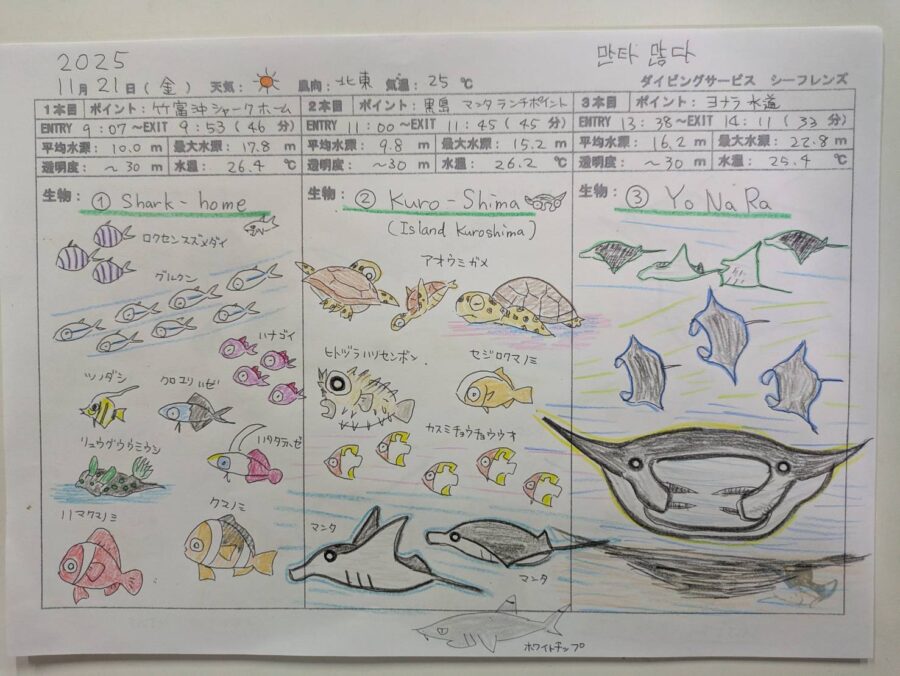 2025
만타 많다
11月21日(金) 天気: 風向: 北東 気温: 25 ℃
ダイビングサービス シーフレンズ
1本目 ポイント: 竹富沖シャークホーム
ENTRY 9:07~EXIT 9:53(46 分)
平均水深: 10.0 m 最大水深: 17.8 m
透明度: ~30 m 水温: 26.4 ℃
生物: ① Shark-home
ロクセンスズメダイ
グルクン
ハナゴイ
ツノダシ
クロユリハゼ
リュウグウウミウシ
ハタタテハゼ
ハマクマノミ
クマノミ
2本目 ポイント: 黒島 マンタランチポイント
ENTRY 11:00~EXIT 11:45(45 分)
平均水深: 9.8 m 最大水深: 15.2 m
透明度: ~30 m 水温: 26.2 ℃
生物: ② Kuro-Shima
(Island Kuroshima)
アオウミガメ
ヒトヅラハリセンボン
セジロクマノミ
カスミチョウチョウウオ
マンタ
マンタ
ホワイトチップ
3本目 ポイント: ヨナラ水道
ENTRY 13:38~EXIT 14:11(33 分)
平均水深: 16.2 m 最大水深: 22.8 m
透明度: ~30 m 水温: 25.4 ℃
生物: ③ YoNaRa